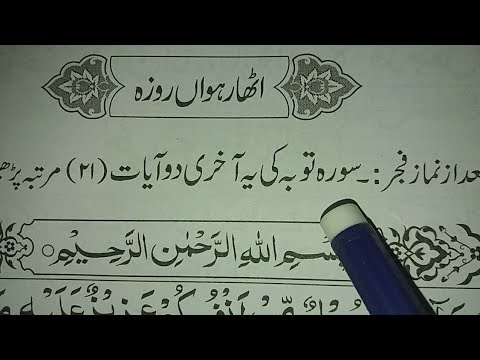 اٹھارہواں روزہ
بعد از نماز فجر :۔ سورہ توبہ کی یہ آخری دو آیات (۲۱) مرتبہ پڑھیں
بِسْمِ اللهِ الرَّحْمٰنِ الرَّحِيْمِ
عَزِيْزٌ عَلَيْهِ